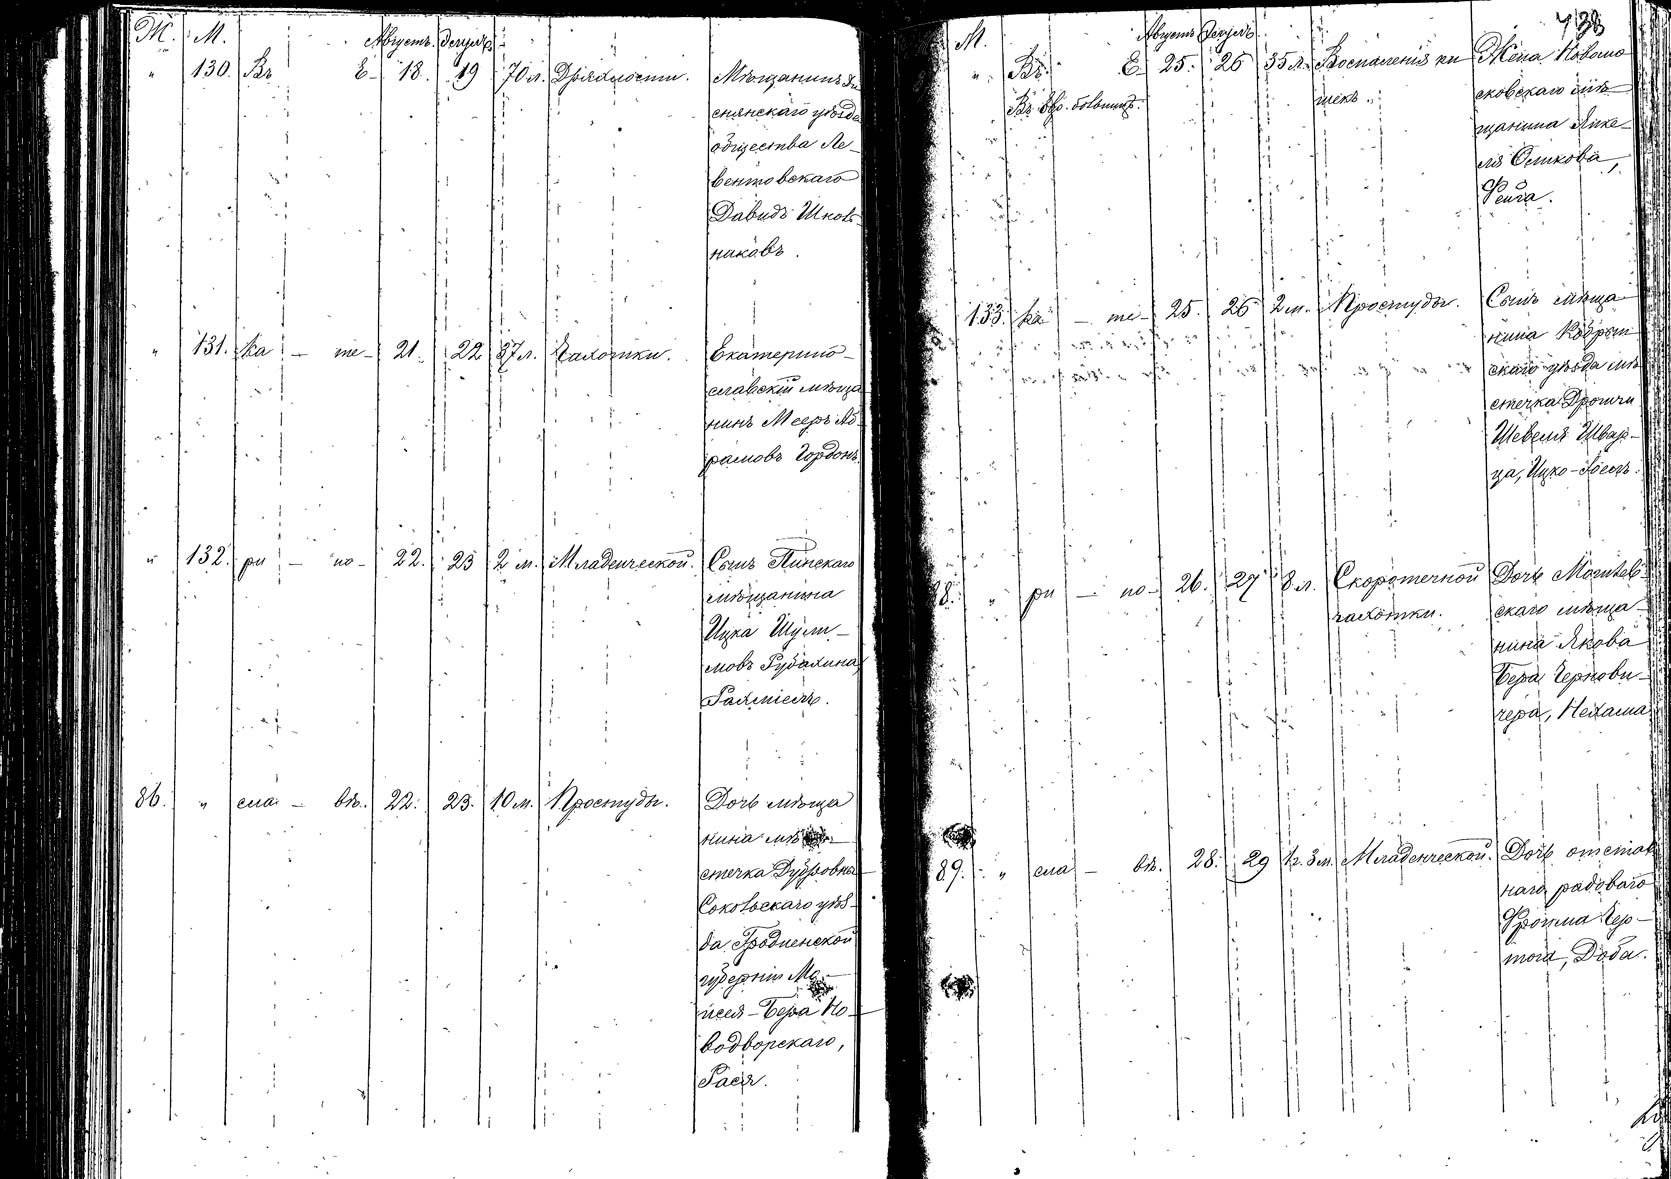 Ж. М. Августъ. Элулъ.
" 130. Въ Е- 18. 19 70 л. Дряхлости. Мѣщанинъ Ди
снянскаго уѣзда
общества Ле-
вентовскаго
Давидъ
наковъ.
" 131. ка - те- 21. 22 37 л. Чахотки. Екатерино-
славскій мѣща
нинъ Мееръ Аб
рамовъ Гордонъ.
" 132. ри - но- 22. 23 2 м. Младенческой. Сынъ Пинскаго
мѣщанина
Ицка Шули-
мовъ Рубахина,
Рахміель.
86. " сла - вѣ. 22. 23. 10 м. Простуды. Дочь мѣща
нина мѣ-
стечка Дубровны
Сокольскаго уѣз-
да Гродненской
губерніи Мо-
исея-Бера Но-
водворскаго,
Рася.
738
М. Августъ Элулъ.
" Въ Е- 25. 26 35 л. Воспаленія ки Жена Новомо
Въ евр. больницѣ. шекъ. сковскаго мѣ-
щанина Янке-
ля Осипова,
Фейга.
133. ка - те- 25. 26 2 м. Простуды. Сынъ мѣща
нина Кобрин
скаго уѣзда мѣ
стечка Дрогичи
Шевеля Швар-
ца, Ицко-Іосель.
88. " ри - но- 26. 27 8 л. Скоротечной Дочь Могилев-
чахотки. скаго мѣща-
нина Якова
Бера Чернови-
чера, Нехама
89. " сла - вѣ. 28. 29 1 г. 3 м. Младенческой. Дочь отстав
наго рядоваго
Фроима Чер-
тога, Доба.